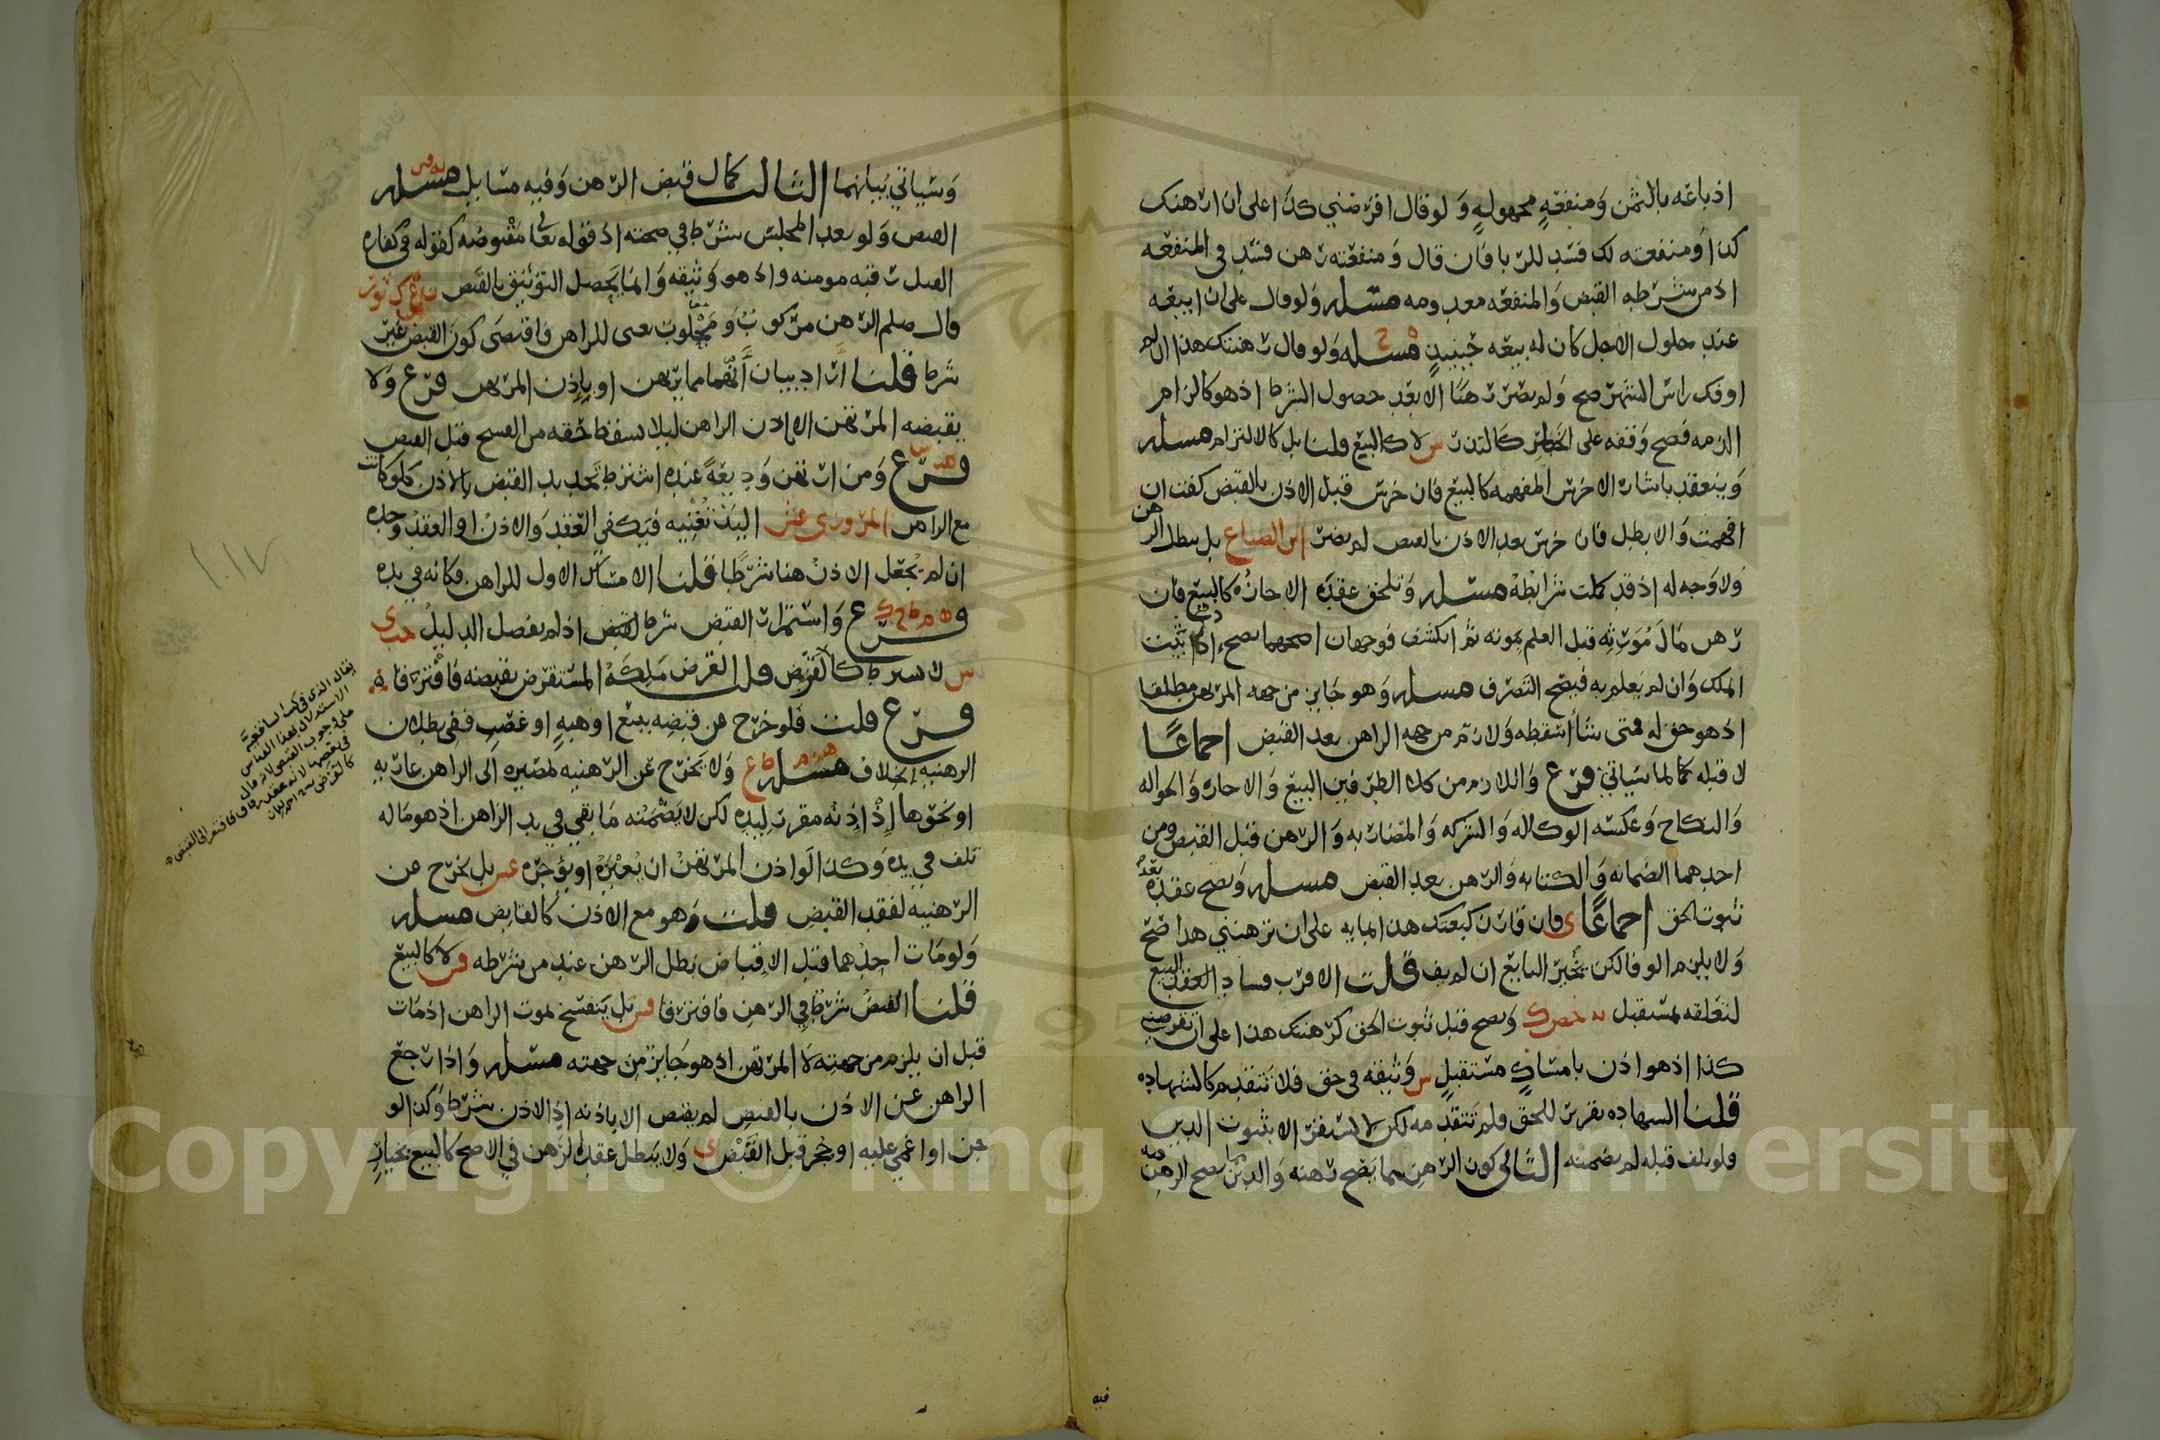 اذ باعه بالثمن ومنفعةٍ مجهولةٍ ولو قال اقرضني كذا على ان ارهنك
كذا ومنفعته لك فسد للربا فان قال ومنفعته رهن فسد في المنفعه
اذ من شرطه القبض والمنفعه معدومه مسله ولو قال على ان ابيعه
عند حلول الاجل كان له بيعه حينئذٍ مسله ولو قال رهنتك هذا ان
او فك راس الشهر صح ولم يصر رهنا الا بعد حصول الشرط اذ هو كالزام
الذمه فصح وقفه على الخطر كالنذر س لا كالبيع قلنا بل كالالتزام مسله
وينعقد باشاره الاخرس المفهمه كالبيع فان خرس قبل الاذن بالقبض كفت ان
افهمت والا بطل فان خرس بعد الاذن بالقبض لم يضر ابن الصباغ بل يبطل الرهن
ولا وجه له اذ قد كملت شرايطه مسله وتلحق عقده الاجازه كالبيع فان
رهن مال مورثه قبل العلم بموته ثم انكشف فوجهان اصحهما يصح اذ ثبت
الملك وان لم يعلم به فيصح التصرف مسله وهو جايز من جهه المرتهن مطلقا
اذ هو حق له فمتى شا اسقطه ولازم من جهه الراهن بعد القبض اجماعًا
لا قبله كما سياتي فرع واللازم من كلا الطرفين البيع والاجاره والحواله
والنكاح وعكسه الوكاله والشركه والمضاربه والرهن قبل القبض ومن
احدهما الضمانه والكتابه والرهن بعد القبض مسله ويصح عقده بعد
ثبوت الحق اجماعًا ي فان قارن كبعتك هذا بمايه على ان ترهنني هذا صح
ولا يلزم الوفا لكن يخير البايع ان لم يف قلت الاقرب فساد العقد
لتعلقه بمستقبل ويصح قبل ثبوت الحق كرهنتك هذا على ان تقرضني
كذا اذ هو اذن بامساكٍ مستقبلٍ س وثيقه في حق فلا تتقدم كالشهاده
قلنا الشهاده تقرير للحق فلم تتقدمه لكن لا يستقر الا بثبوت الدين
ولو تلف قبله لم يضمنه الثاني كون الرهن مما يصح رهنه والدين مما يصح الرهن فيه
وسياتي بيانهما الثالث كمال قبض الرهن وفيه مسايل مسله
القبض ولو بعد المجلس شرط في صحته اذ قوله تعا مقبوضه كقوله في كفاره
القتل رقبه مومنه واذ هو وثيقه وانما يحصل التوثيق بالقبض
قال صلم الرهن مركوب ومحلوب يعني للراهن فاقتضى كون القبض غير
شرط قلنا اراد بيان انهما مما يرهن او باذن المرتهن فرع ولا
يقبضه المرتهن الا باذن الراهن ليلا يسقط حقه من الفسخ قبل القبض
فرع ومن ارتهن وديعةً عنده اشترط تجديد القبض بالاذن كلو كانت
مع الراهن المروزي اليد تغنيه فيكفي العقد والاذن او العقد وحده
ان لم يجعل الاذن هنا شرطًا قلنا الامساك الاول للراهن فكانه في يده
فرع واستمرار القبض شرط كالقبض اذ لم يفصل الدليل
س لا يشترط كالقرض قلنا القرض ملكه المستقرض بقبضه فافترقا
فرع قلت فلو خرج عن قبضه ببيع او هبهٍ او غصبٍ ففي بطلان
الرهنيه الخلاف مسله ولا يخرج عن الرهنيه لمصيره الى الراهن عاريه
او نحوها اذ اذنه مقرر ليده لكن لا يضمنه ما بقي في يد الراهن اذ هو ماله
تلف في يده وكذا لو اذن المرتهن ان يعيره او يؤجره بل يخرج عن
الرهنيه لفقد القبض قلت وهو مع الاذن كالقابض مسله
ولو مات احدهما قبل الاقباض بطل الرهن عند من شرطه لا كالبيع
قلنا القبض شرط في الرهن فافترقا بل ينفسخ بموت الراهن اذ مات
قبل ان يلزم من جهته لا المرتهن اذ هو جايز من جهته مسله واذا رجع
الراهن عن الاذن بالقبض لم يقبض الا باذنه اذ الاذن شرط وكذا لو
جن او اغمي عليه او حجر قبل القبض ي ولا يبطل عقد الرهن في الاصح كالبيع بخيار
فيه
Copyright © King Saud University
1957